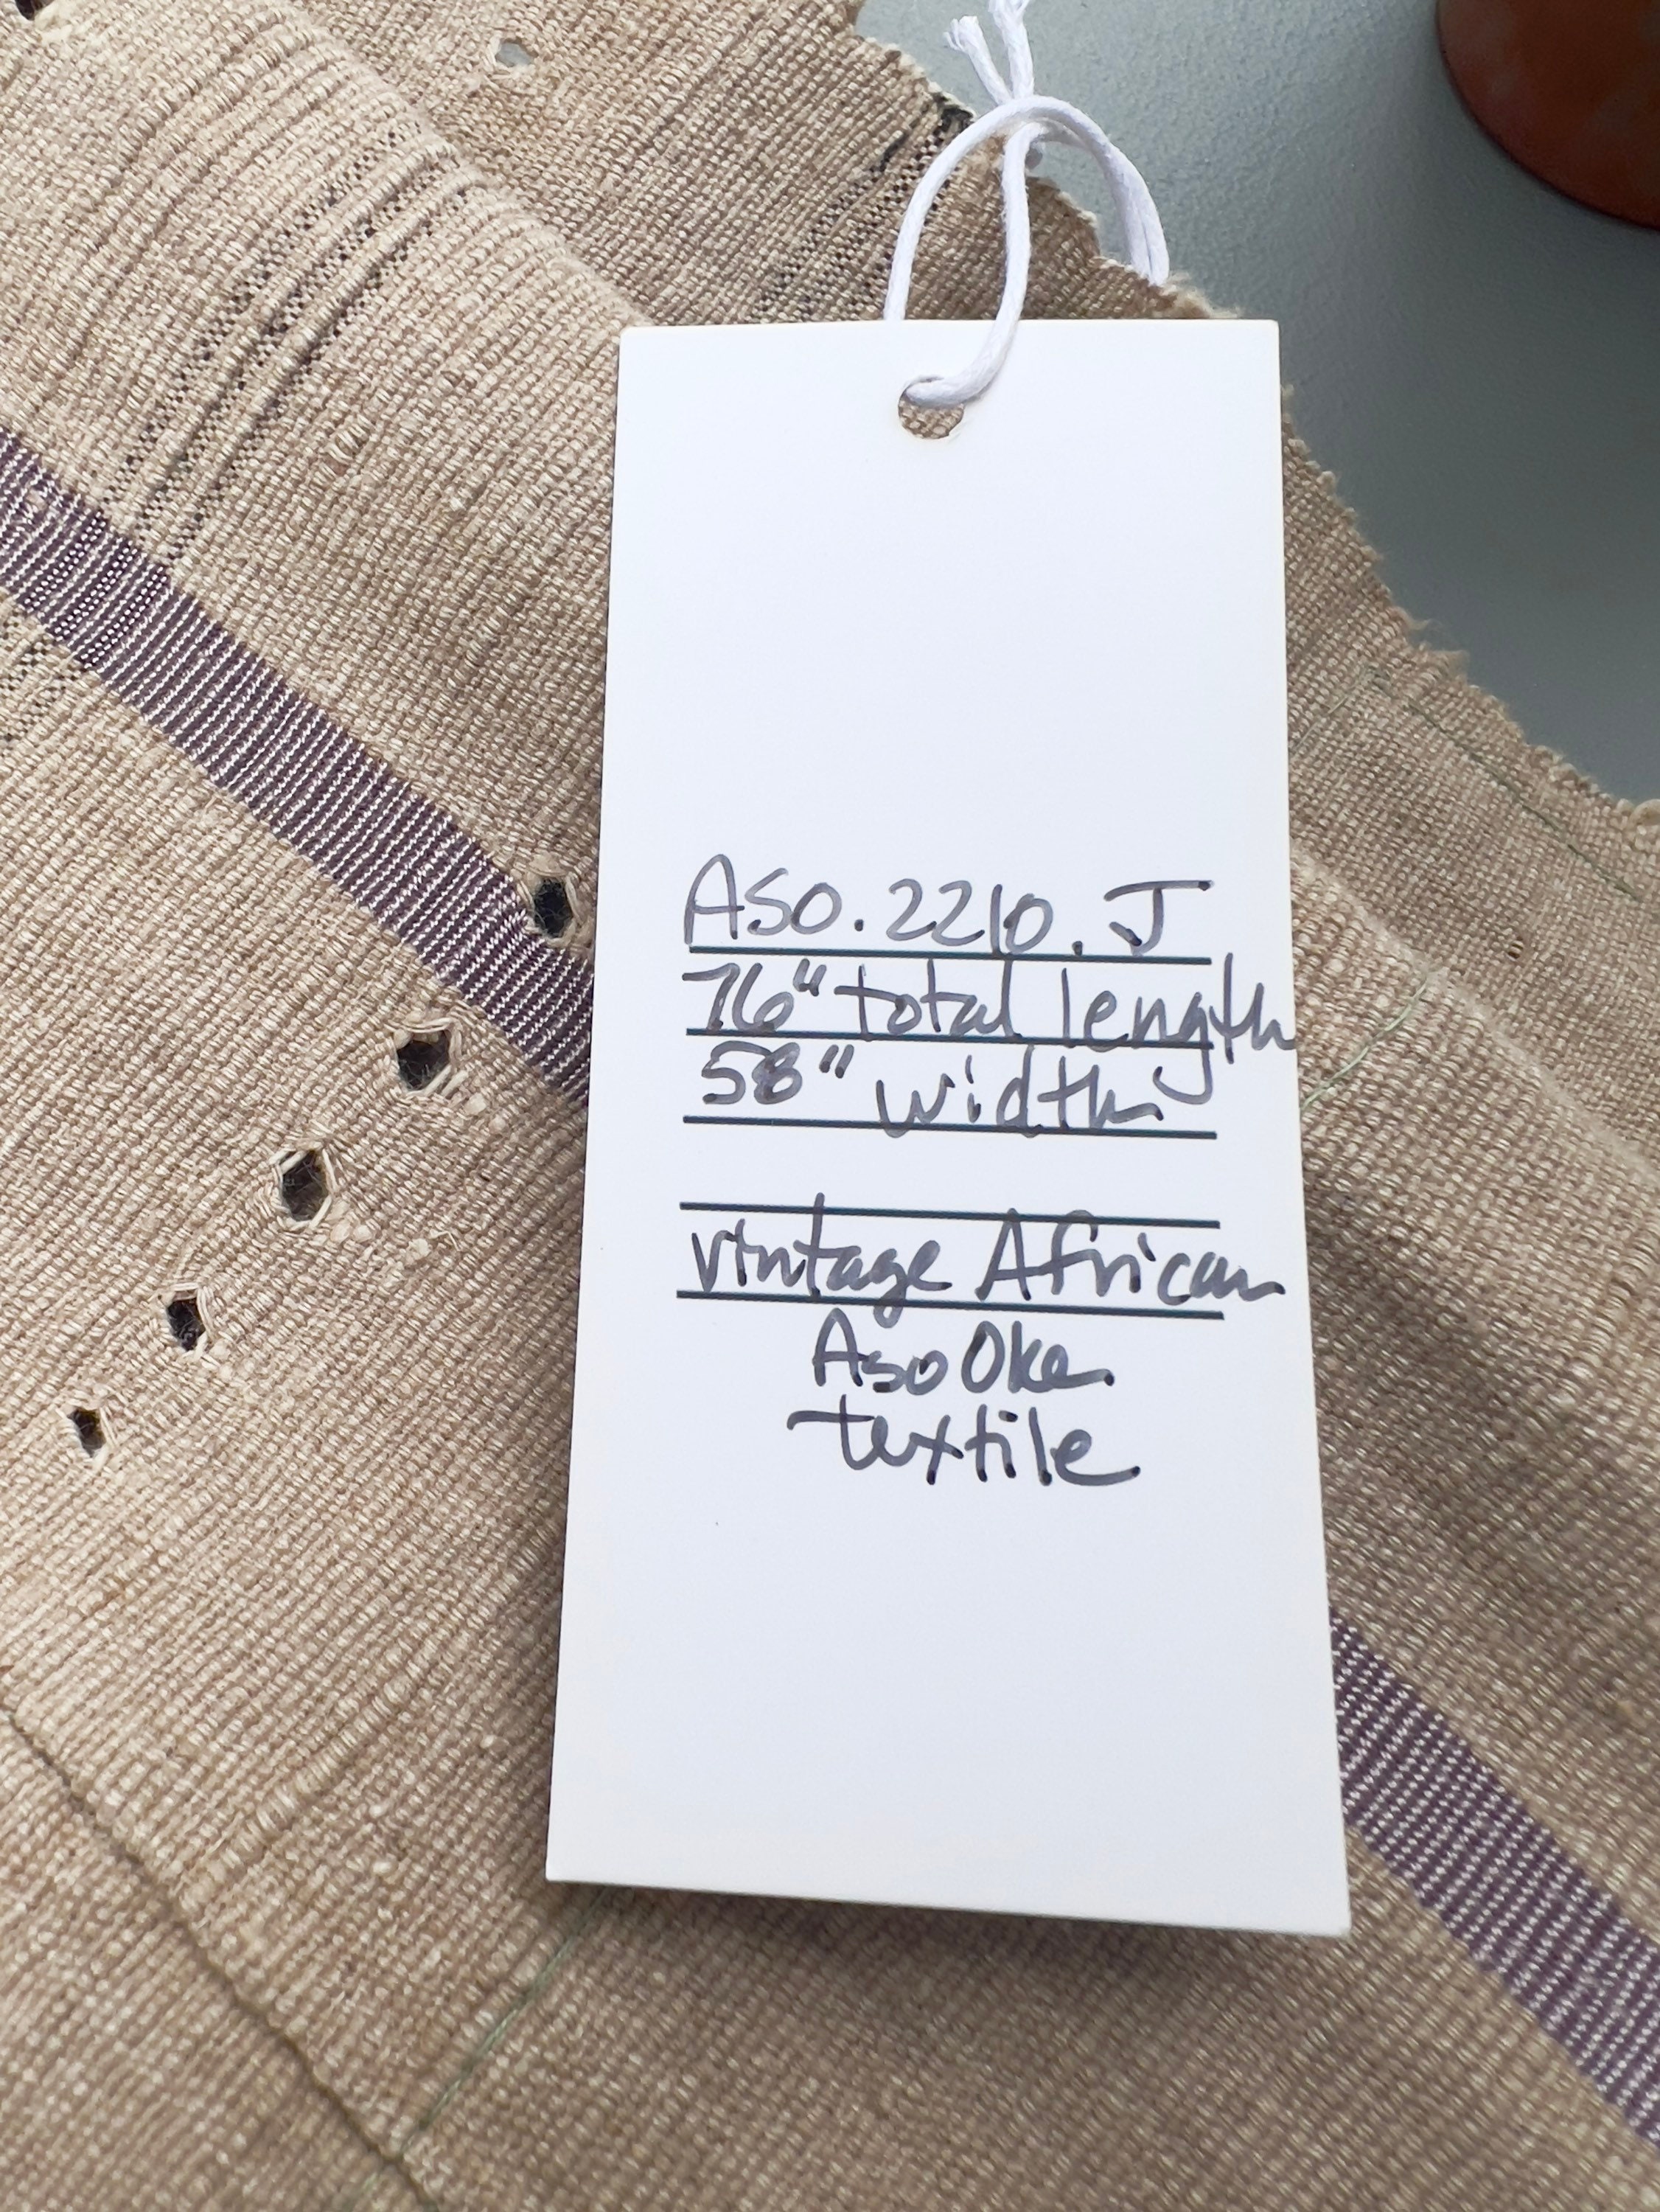 ASO.2210.J
76" total length
58" width
vintage African
Aso Oke
textile